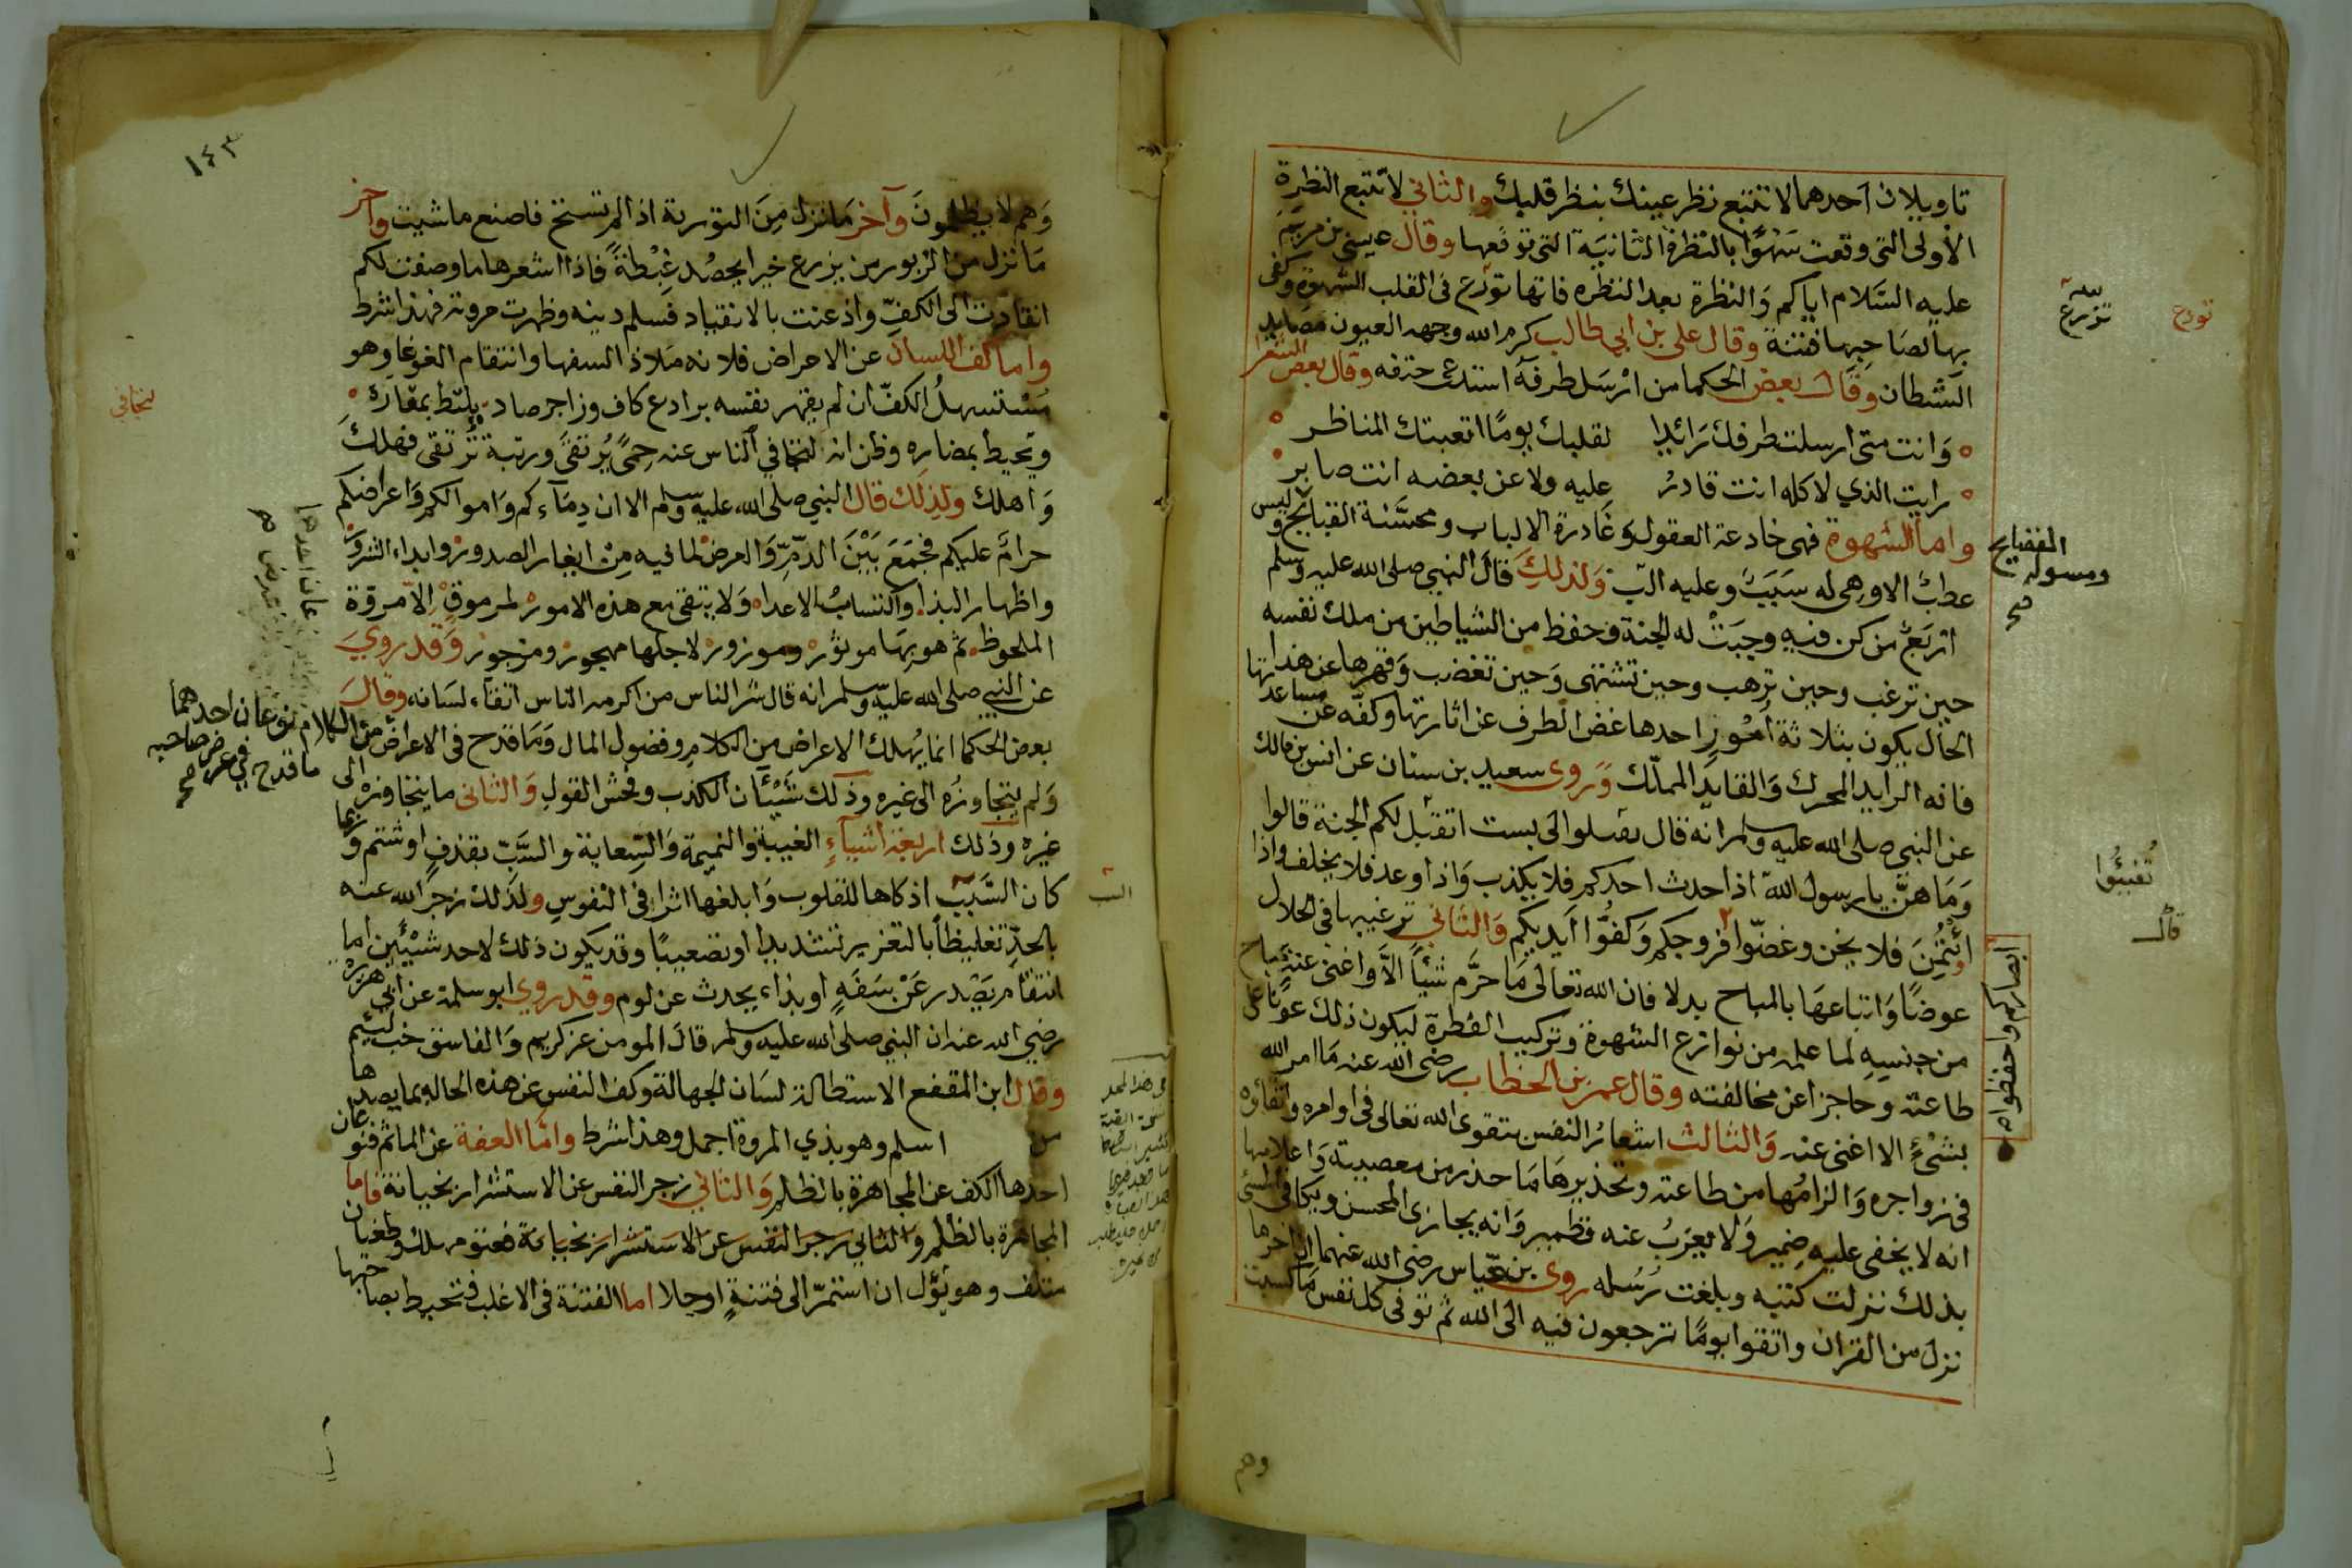 تاويلان احدهما لا تتبع نظر عينك بنظر قلبك والثاني لا تتبع النظرة
الأولى التي وقعت سهوًا بالنظرة الثانية التي توقعها وقال عيسى بن مريم
عليه السلام اياكم والنظرة بعد النظره فانها تزرع في القلب الشهوة وكفى
بها لصاحبها فتنة وقال علي بن ابي طالب كرم الله وجهه العيون مصايد
الشطان وقال بعض الحكما من ارسل طرفه استدعى حتفه وقال بعض الشعرا
وانت متى ارسلت طرفك رائدا لقلبك يومًا اتعبتك المناظر
رايت الذي لا كله انت قادرُ عليه ولا عن بعضه انت صابر
واما الشهوة فهي خادعة العقول وغادرة الالباب ومحسنة القبايح وليس
عطبٌ الا وهي له سببٌ وعليه البٌ ولذلك قال النبي صلى الله عليه وسلم
اربعٌ من كن فيه وجبت له الجنة وحفظ من الشياطين من ملك نفسه
حين ترغب وحين ترهب وحين تشتهى وحين تغضب وقهرها عن هذا
الحال يكون بثلاثة أمورٍ احدها غض الطرف عن اثارتها وكفه عن مساعدتها
فانه الرايد المحرك والقايد المهلك وروى سعيد بن سنان عن انس بن مالك
عن النبي صلى الله عليه وسلم انه قال تقبلوا الي بست اتقبل لكم الجنة قالوا
وما هن يا رسول الله اذا حدث احدكم فلا يكذب واذا وعد فلا يخلف واذا
ائتمن فلا يخن وغضوا فروجكم وكفوا أيديكم والثاني ترغيبها في الحلال
عوضًا واتباعها بالمباح بدلا فان الله تعالى ما حرم شيئًا الا واغنى عنه بمباح
من جنسه لما علمه من نوازع الشهوة وتركيب الفطرة ليكون ذلك عونًا على
طاعته وحاجزا عن مخالفته وقال عمر بن الخطاب رضي الله عنه ما امر الله
بشئٍ الا اغنى عنه والثالث اشعار النفس بتقوى الله تعالى في اوامره واتقاؤه
في زواجره والزامها من طاعته وتحذيرها ما حذر من معصيته واعلامها
انه لا يخفى عليه ضمير ولا يعزب عنه قطمير وانه يجازى المحسن ويكافى المسئ
بذلك نزلت كتبه وبلغت رسله روى بن عباس رضي الله عنهما ان اخر ما
نزل من القران واتقوا يومًا ترجعون فيه الى الله ثم توفى كل نفس ما كسبت
وهم
تزرع
القبايح
ومسوله
صح
تفيئوا
قال
ابصاركم واحفظوا
١٤٣
وهم لا يظلمون وآخر ما نزل من التورية اذا لم تستح فاصنع ما شيت واخر
ما نزل من الزبور من يزرع خيرا يحصد غبطةً فاذا اشعرها ما وصفت لكم
انقادت الى الكف واذعنت بالانقياد فسلم دينه وظهرت مروته فهذا شرط
واما كف اللسان عن الاعراض فلانه ملاذ السفها وانتقام الغوغا وهو
مستسهل الكف ان لم يقهر نفسه برادع كاف وزاجر صاد تلبط بمعاره
وتحيط بمضاره وظن انه لتجافي الناس عنه حمىً يُرتقى ورتبة تُرتقى فهلك
واهلك ولذلك قال النبي صلى الله عليه وسلم الا ان دماءكم واموالكم واعراضكم
حرامٌ عليكم فجمع بين الدم والعرض لما فيه من ايغار الصدور وابداء الشرور
واظهار البذا واكتساب الاعداء ولا يبقى مع هذه الامور لمرموق الا مروة
الملحوظ ثم هو بها موتور وموزور ولاجلها مهجور ومزجور وقد روي
عن النبي صلى الله عليه وسلم انه قال شر الناس من اكرمه الناس اتقاء لسانه وقال
بعض الحكما انما يهلك الاعراض من الكلام وفضول المال وما قدح في الاعراض من الكلام نوعان احدهما
ما قدح في عرض صاحبه
صح
ولم يتجاوزه الى غيره وذلك شيئان الكذب وفحش القول والثاني ما يتجاوزه الى
غيره وذلك اربعة اشياء الغيبة والنميمة والسعاية والسب بقذف او شتم وربما
كان السبب اذكاها للقلوب وابلغها اثرا في النفوس ولذلك زجر الله عنه
بالحد تغليظًا بالتعزير تشديدا او تصعيبًا وقد يكون ذلك لاحد شيئين اما
انتقام يصدر عن سفهٍ او بذاء يحدث عن لوم وقد روي ابو سلمة عن ابي هريرة
رضي الله عنه ان النبي صلى الله عليه وسلم قال المومن غر كريم والفاسق خب لئيم
وقال ابن المقفع الاستطالة لسان الجهالة وكف النفس عن هذه الحاله بما يصدها
من اسلم وهو بذي المروة اجمل وهذا شرط واما العفة عن الماثم فنوعان
احدها الكف عن المجاهرة بالظلم والثاني زجر النفس عن الاستشرار بخيانة فاما
المجاهرة بالظلم والثاني زجر النفس عن الاستشرار بخيانة فعتو مهلك وطغيان
متلف وهو يؤل ان استمر الى فتنةٍ او جلا اما الفتنة في الاغلب فتحيط بصاحبها